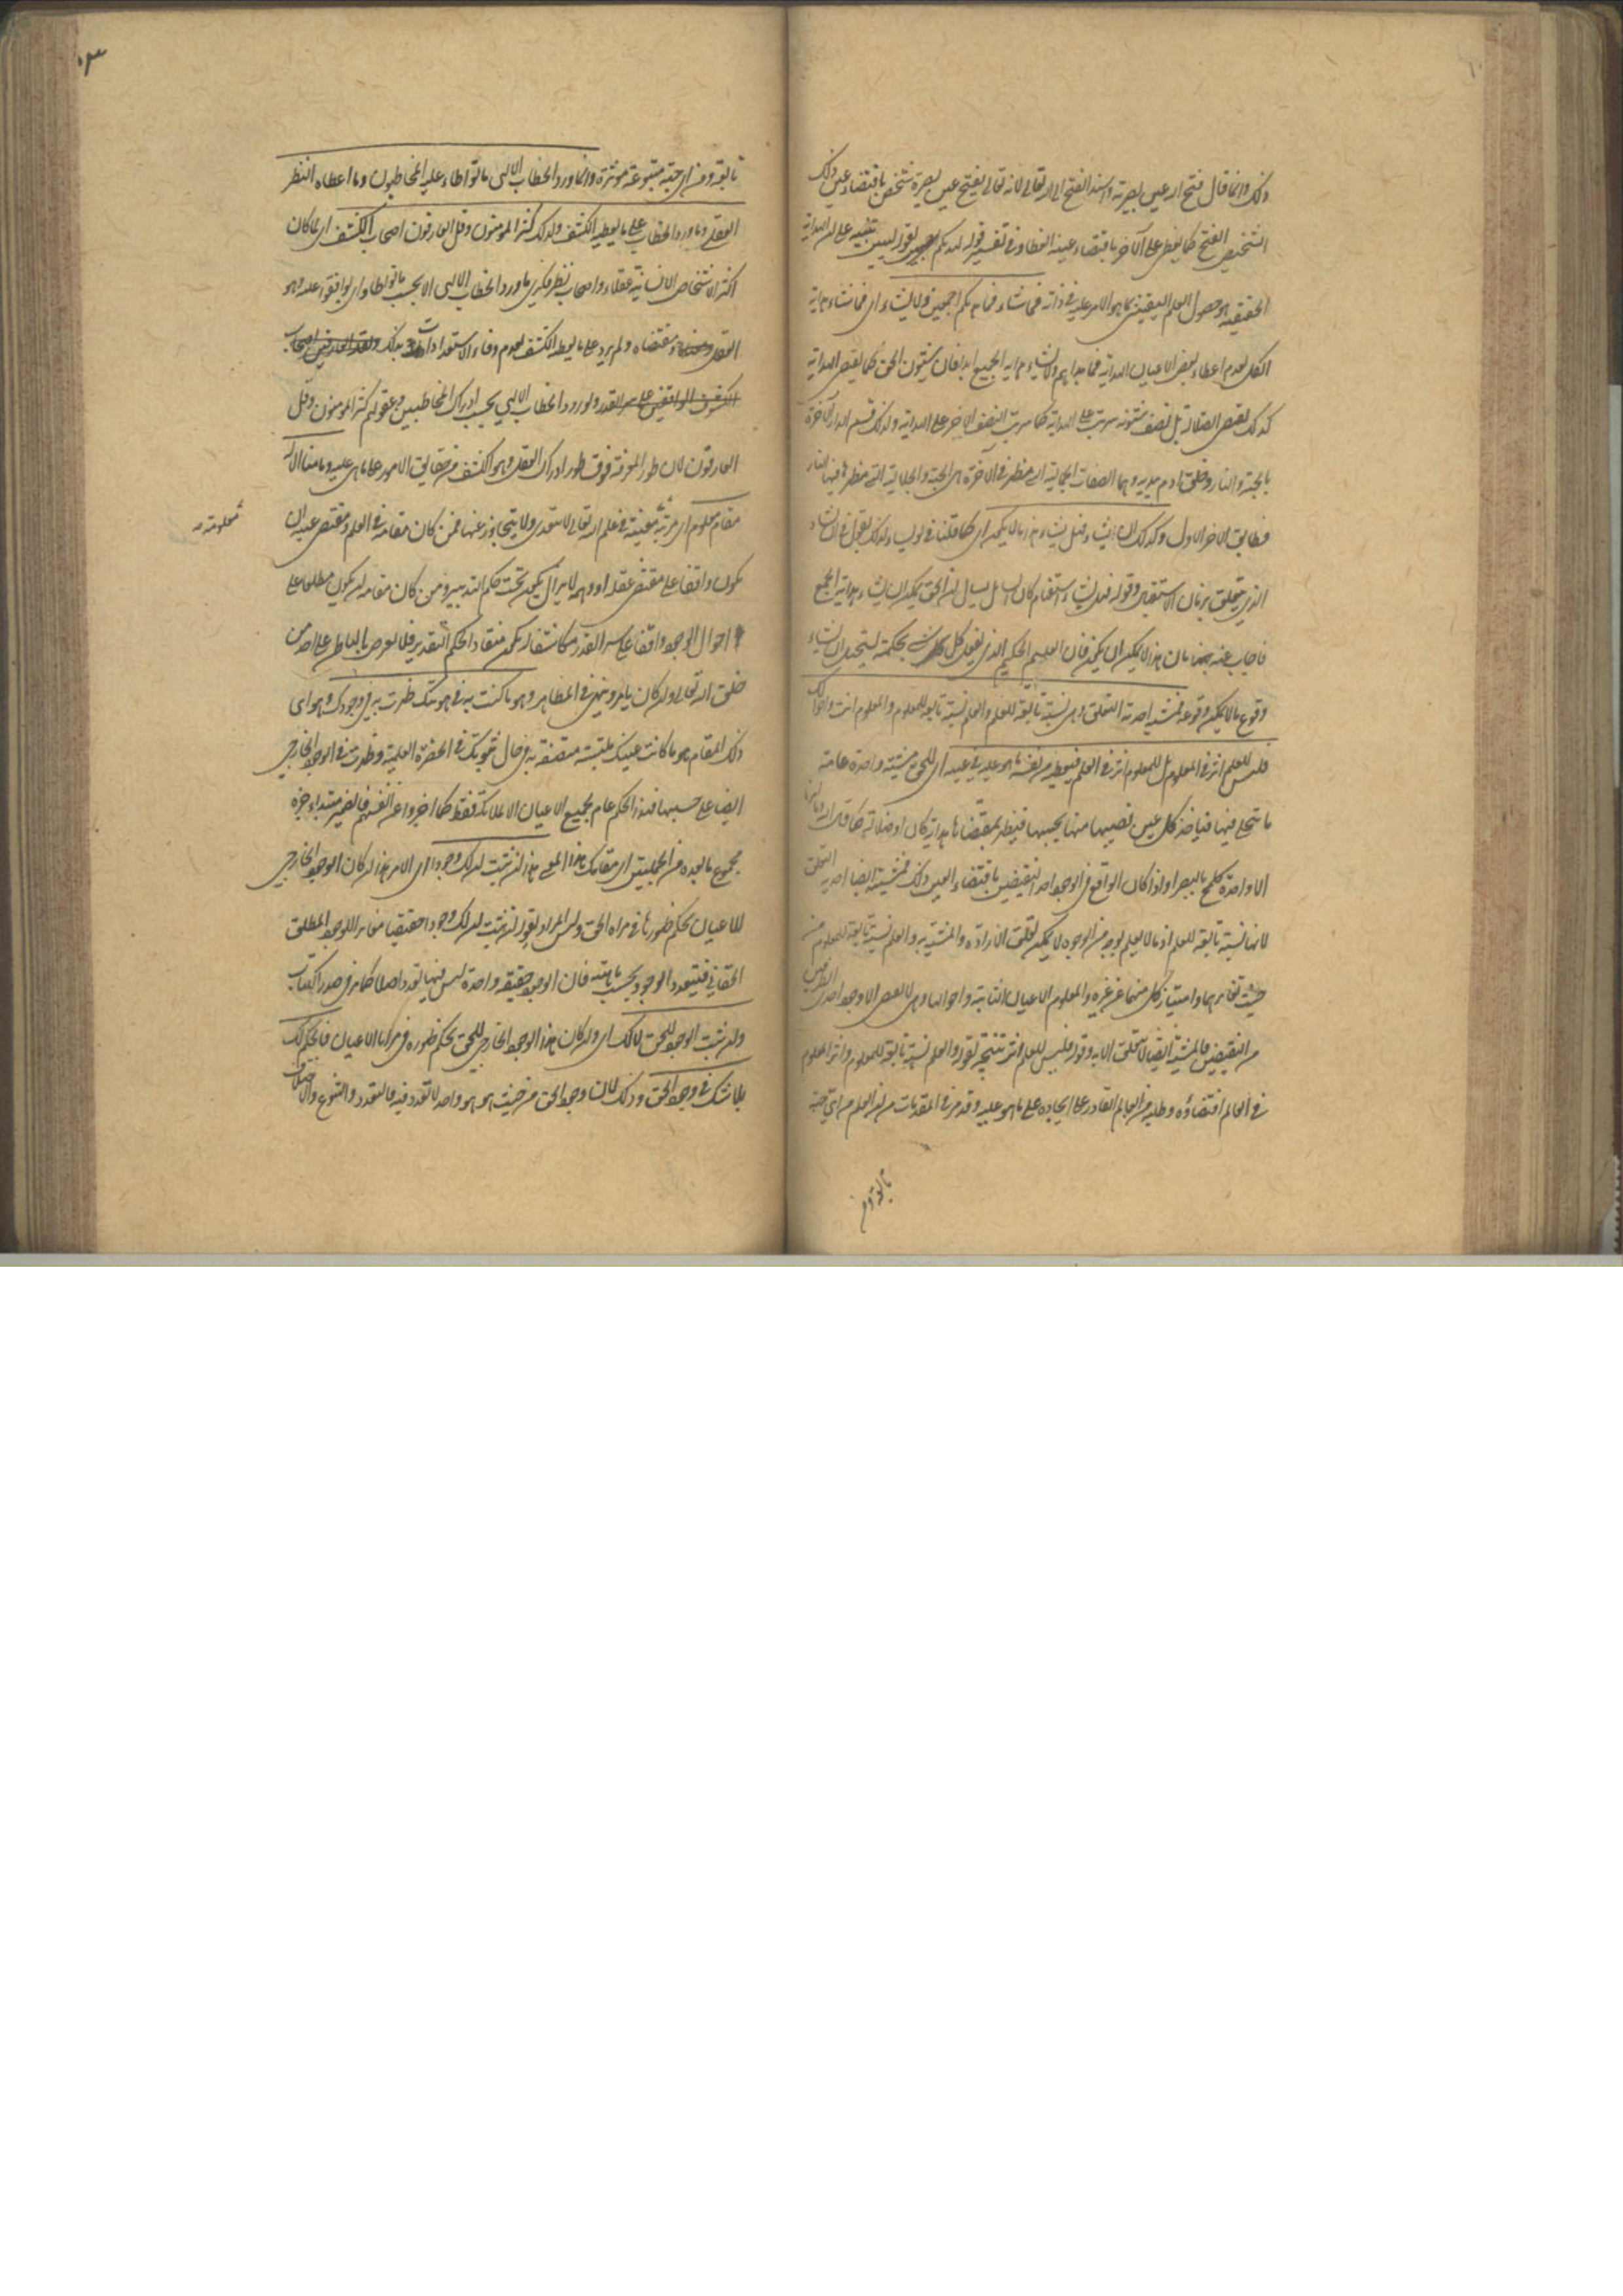 ذلك وانما قال فتح الله عين بصيرته واسند الفتح الى الله تعالى لانه تعالى يفتح عين بصيرة شخص باقتضاء عين ذلك
الشخص الفتح كما يغطى على الآخر باقتضاء عينه الغطاء وفي تفسير قوله لهديكم بقوله ليبين تنبيه على ان الهداية
الحقيقية هو حصول العلم اليقيني بما هو الامر عليه في ذاته فما شاء فما هديكم اجمعين ولا يشاء اى فما شاء هداية
الكل لعدم اعطاء بعض الاعيان الهداية فما هداهم ولا يشاء هداية الجميع ابدا فان شئون الحق كما يقتضى الهداية
كذلك يقتضى الضلالة بل نصف شئونه يترتب على الضلالة كما يترتب النصف الآخر على الهداية ولذلك قسم الدار الآخرة
بالجنة والنار وخلق آدم بيديه وهما الصفات الجمالية التى مظهرها في الآخرة هى الجنة والجلالية التى مظهرها فيها النار
فطابق الآخر الاول وكذلك ان يشاء فهل يشاء هذا ما لا يكون اى كما قلنا في لو يشاء كذلك نقول في ان يشاء
الذى يتعلق بزمان الاستقبال وقوله فهل يشاء استفهام كان السائل يسأل ان الحق يمكن ان يشاء هداية الجميع
فاجاب عنه بان هذا لا يمكن ان يكون فان العليم الحكيم الذى يفعل كل شئ بحكمته يستحيل ان يشاء
وقوع ما لا يمكن وقوعه فمشيته احدية التعلق وهى نسبة تابعة للعلم والعلم نسبة تابعة للمعلوم والمعلوم انت واحوالك
فليس للعلم اثر في المعلوم بل للمعلوم اثر في العلم فيعطيه من نفسه ما هو عليه في عينه اى للحق مشية واحدة عامة
ما يتجلى فيها فيأخذ كل عين نصيبها منها بحسبها فيظهر بمقتضاها هداية كان او ضلالة كما قال الله وما امرنا
الا واحدة كلمح بالبصر واذا كان الواقع في الوجود احد النقيضين باقتضاء العين ذلك فمشيته ايضا احدية التعلق
لانها نسبة تابعة للعلم اذ ما لا يعلم بوجه من الوجوه لا يمكن تعلق الارادة والمشية به والعلم نسبة تابعة للمعلوم من
حيث تغايرهما وامتياز كل منهما عن غيره والمعلوم الاعيان الثابتة واحوالها وهى لا يقتضى الا وجود احد الطرفين
من النقيضين فالمشية ايضا لا تتعلق الا به وقوله فليس للعلم اثر نتيجة لقوله والعلم نسبة تابعة للمعلوم واثر المعلوم
في العالم اقتضاؤه وطلبه من العالم القادر على ايجاده على ما هو عليه وقد مر في المقدمات من ان العلم من اى جهة
تابعة ومن
تابعة ومن اى جهة متبوعة مؤثرة وانما ورد الخطاب الالهى ما تواطاء عليه المخاطبون وما اعطاه النظر
العقلى وما ورد الخطاب على ما يعطيه الكشف ولذلك كثر المؤمنون وقل العارفون اصحاب الكشف اى لما كان
اكثر الاشخاص الانسانية عقلاء واصحاب نظر فكرى ما ورد الخطاب الالهى الا بحسب ما تواطاوا اى توافقوا عليه وهو
العقل ومقتضاه ولم يرد على ما يعطيه الكشف لعدم وفاء الاستعدادات بذلك
ولورود الخطاب الالهى بحسب ادراك المخاطبين وعقولهم كثر المؤمنون وقل
العارفون لان طور المعرفة فوق طور ادراك العقل وهو الكشف من حقايق الامور على ما هى عليه وما منا الا له
مقام معلوم اى مرتبة معينة في علم الله تعالى لا يتعدى ولا يتجاوز عنها فمن كان مقامه في العلم ومقتضى عينه ان
يكون واقفا على مقتضى عقله او وهمه لا يزال يكون تحت حكم التدبير ومن كان مقامه ان يكون مطلعا على
احوال الوجود واقفا على سر القدر مكاشفا له يكون منقادا لحكم التقدير فلا يعرض بالباطن على احد من
خلق الله تعالى وان كان يأمر وينهى في الظاهر وهو ما كنت به في ثبوتك ظهرت به في وجودك وهو اى
ذلك المقام هو ما كانت عينك ملتبسة متصفة به في حال ثبوتك في الحضرة العلمية وظهرت في الوجود الخارجى
ايضا على حسبها فهذا الحكم عام لجميع الاعيان لا للملائكة فقط كما اخبروا عن انفسهم فالضمير مبتداء وخبره
مجموع ما بعده من الجملتين اى مقامك هذا المعنى هذا ان ثبت ان لك وجودا اى الامر هذا ان كان الوجود الخارجى
للاعيان بحكم ظهورها في مرآة الحق وليس المراد بقوله ان ثبت ان لك وجودا حقيقيا مغايرا للوجود المطلق
الحقانى فيتعدد الوجود بحسب ماهيته فان الوجود حقيقة واحدة ليس فيها تعدد اصلا كما مر في صدر الكتاب
وان ثبت الوجود للحق لا لك اى وان كان هذا الوجود الخارجى للحق بحكم ظهوره في مرايا الاعيان فالحكم لك
بلا شك في وجود الحق وذلك لان وجود الحق من حيث هو هو واحد لا تعدد فيه فالتعدد والتنوع والاختلاف
معلومة